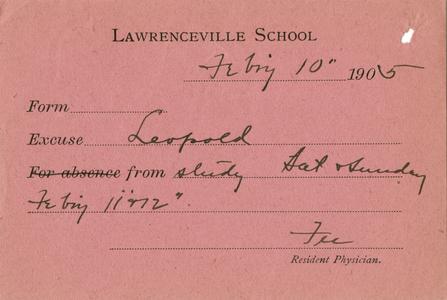 LAWRENCEVILLE SCHOOL
Febry 10" 1905
Form
Excuse Leopold
For absence from study Sat & Sunday
Febry 11" & 12".
Resident Physician.